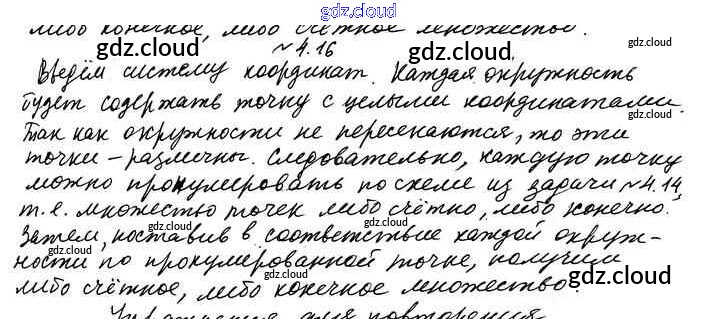 gdz.cloud
либо конечное, либо счётное множество.
gdz.cloud
№ 4.16
gdz.cloud
Введём систему координат. Каждая окружность
будет содержать точку с целыми координатами.
Так как окружности не пересекаются, то эти
точки – различны. Следовательно, каждую точку
можно пронумеровать по схеме из задачи № 4.14,
т.е. множество точек либо счётно, либо конечно.
gdz.cloud
Затем, поставив в соответствие каждой окруж-
ности по пронумерованной точке, получим
gdz.cloud
либо счётное, либо конечное множество.
gdz.cloud
Упражнения для повторения